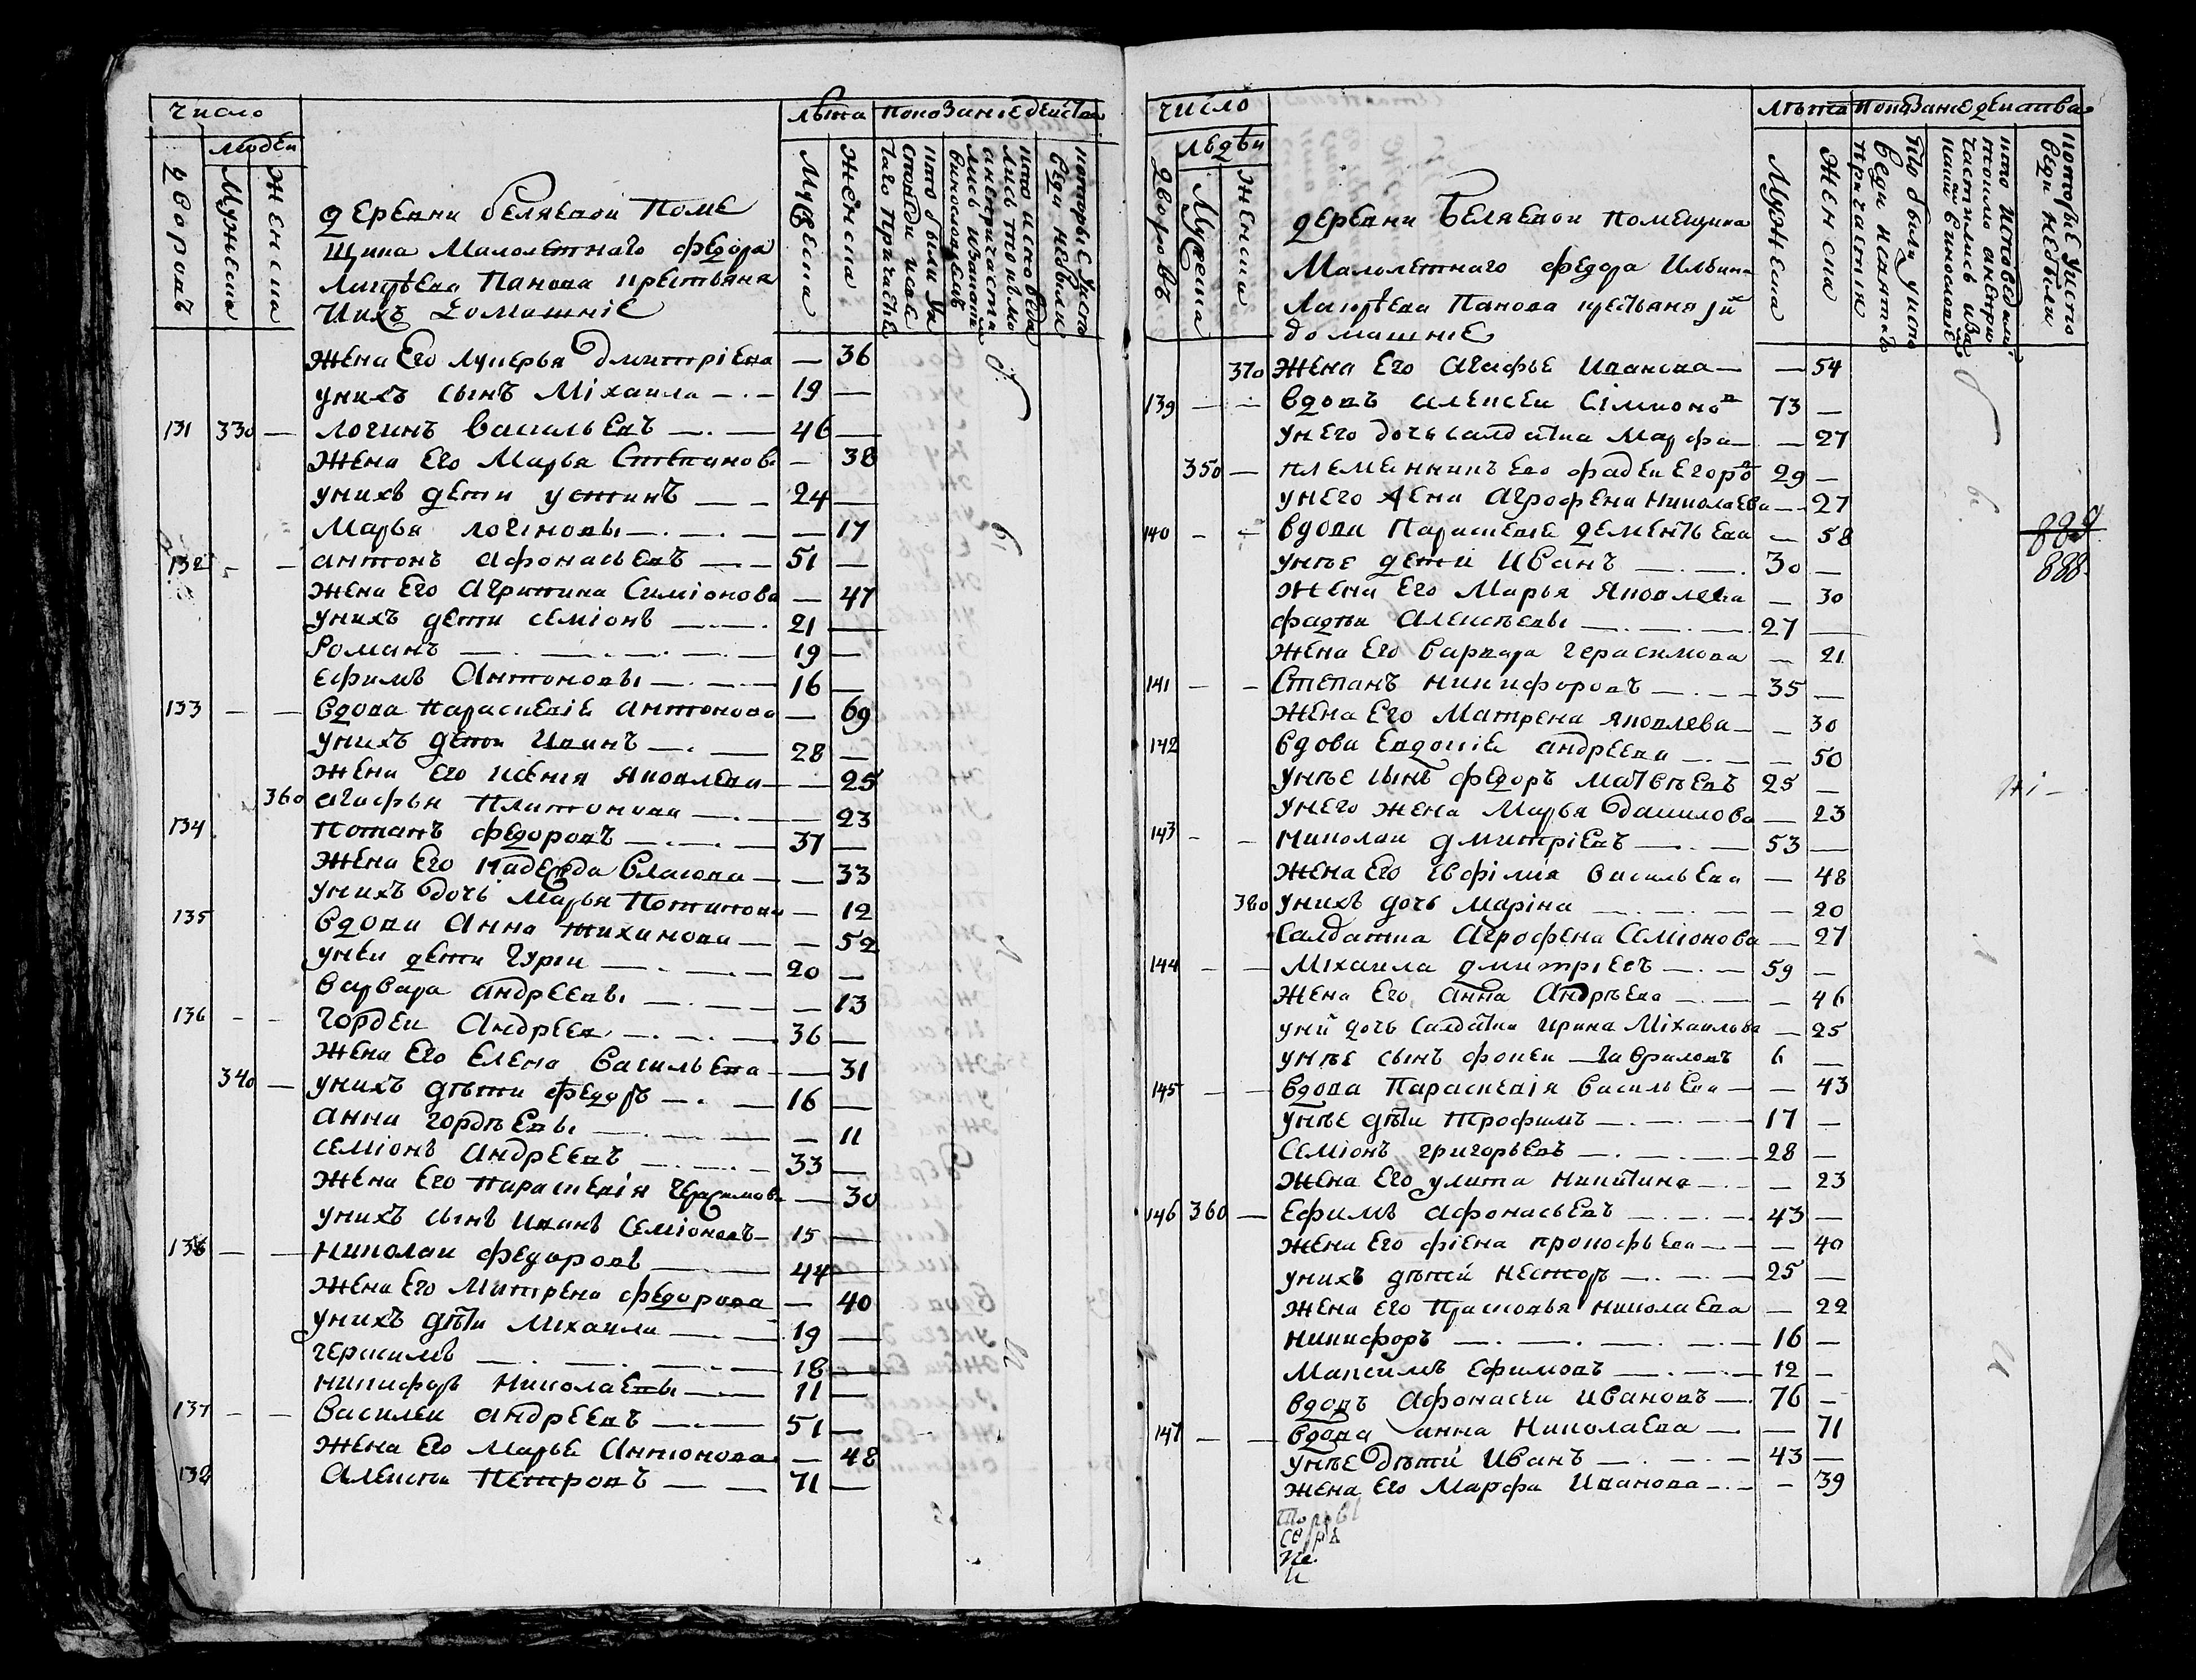 число
лѣта показание действа
людеи
дворовъ
мужеска
женска
мужеска
женска
деревни беляевои поме
щика Малолетнаго федора
Панова крестьяня
Ихъ домашніе
Жена Его лукерья Дмитріева — 36
унихъ сынъ Міхаила — 19 —
131 330 — логинъ васильевъ — 46 —
Жена Его Марья Степанова — 38
унихъ дети устинъ — 24 —
Марья логіновы — 17
132 - - антонъ афонасьевъ — 51 —
Жена Его Агрипина Симіонова — 47
унихъ дети семіонъ — 21 —
Романъ — 19 —
Ефимъ Антоновы — 16 —
133 — — вдова Параскевіе антонова — 69
унихъ дети Иванъ — 28 —
жена его ксѣния яковлева — 25
360 агафья Платонова — 23
134 Потапъ федоровъ — 37 —
Жена Его Надежда власова — 33
унихъ дочь Марья Потапова — 12
135 вдова Анна тиханова — 52
унеи дети Гурии — 20 —
варвара андреевы — 13
136 - - гордеи Андреев — 36 —
Жена Его Елена васильева — 31
340 — унихъ дѣти федоръ — 16 —
анна гордѣевы — 11
семіонъ андреевъ — 33 —
Жена Его параскевія Герасимова — 30
унихъ сынъ иванъ семіоновъ — 15 —
136 — — николаи федоровъ — 44 —
Жена Его Матрена федорова — 40
унихъ дѣти Міхаила — 19 —
герасимъ — 18 —
никифоръ николаевы — 11 —
137 - - василеи андреевъ — 51 —
Жена Его Марье Антонова — 48
138 Алексѣи Петровъ — 71 —
число
лѣта показание действа
людѣи
дворовъ
мужеска
женска
мужеска
женска
деревни Беляевои помещика
Малолетнаго федора Ильина
Панова крестьяня ји
домашніе
370 жена Его Агафье Иванова — 54
139 — - вдовъ алексеи Сімионов 73 —
унего дочь салдатка Марфа — 27
350 — племенникъ его фадеи Егоров 29 —
унего жена Агрофена николаева — 27
140 - - вдова Параскевіе дементьева — 58
унѣе дети Иванъ — 30 —
жена Его Марья яковлева — 30
889
888.
фадѣи алексѣевы — 27 —
жена Его варвара герасимова — 21
141 - - Степанъ никифоровъ — 35 —
жена Его Матрена яковлева — 30
142 вдова Евдокіе андреева — 50
унѣе сынъ федоръ матвѣевъ 25 —
унего жена Марья данилова — 23
143 - - николаи дмитріевъ — 53 —
жена его евфімія васильева — 48
380 унихъ дочь маріна — 20
салдатка Агрофена Семіонова — 27
144 - - Міхаила дмитріевъ — 59 —
жена Его Анна Андрѣева — 46
уни дочь салдатка ирина Міхаилова — 25
унѣе сынъ фокеи Гавриловъ 6 —
145 - - вдова Параскевія васильева — 43
унѣе дѣти трофимъ — 17 —
семіонъ григорьевъ — 28 —
жена Его улита никитина — 23
146 360 — Ефимъ афонасьевъ — 43 —
жена Его фіена прокофьева — 40
унихъ дѣтй нестор — 25 —
жена его прасковья николаева — 22
никифоръ — 16 —
Максимъ ефимовъ — 12 —
вдовъ Афонасеи Ивановъ — 76 —
147 — — вдова анна николаева — 71
унѣе дѣтй Иванъ — 43 —
жена Его Марфа Иванова — 39